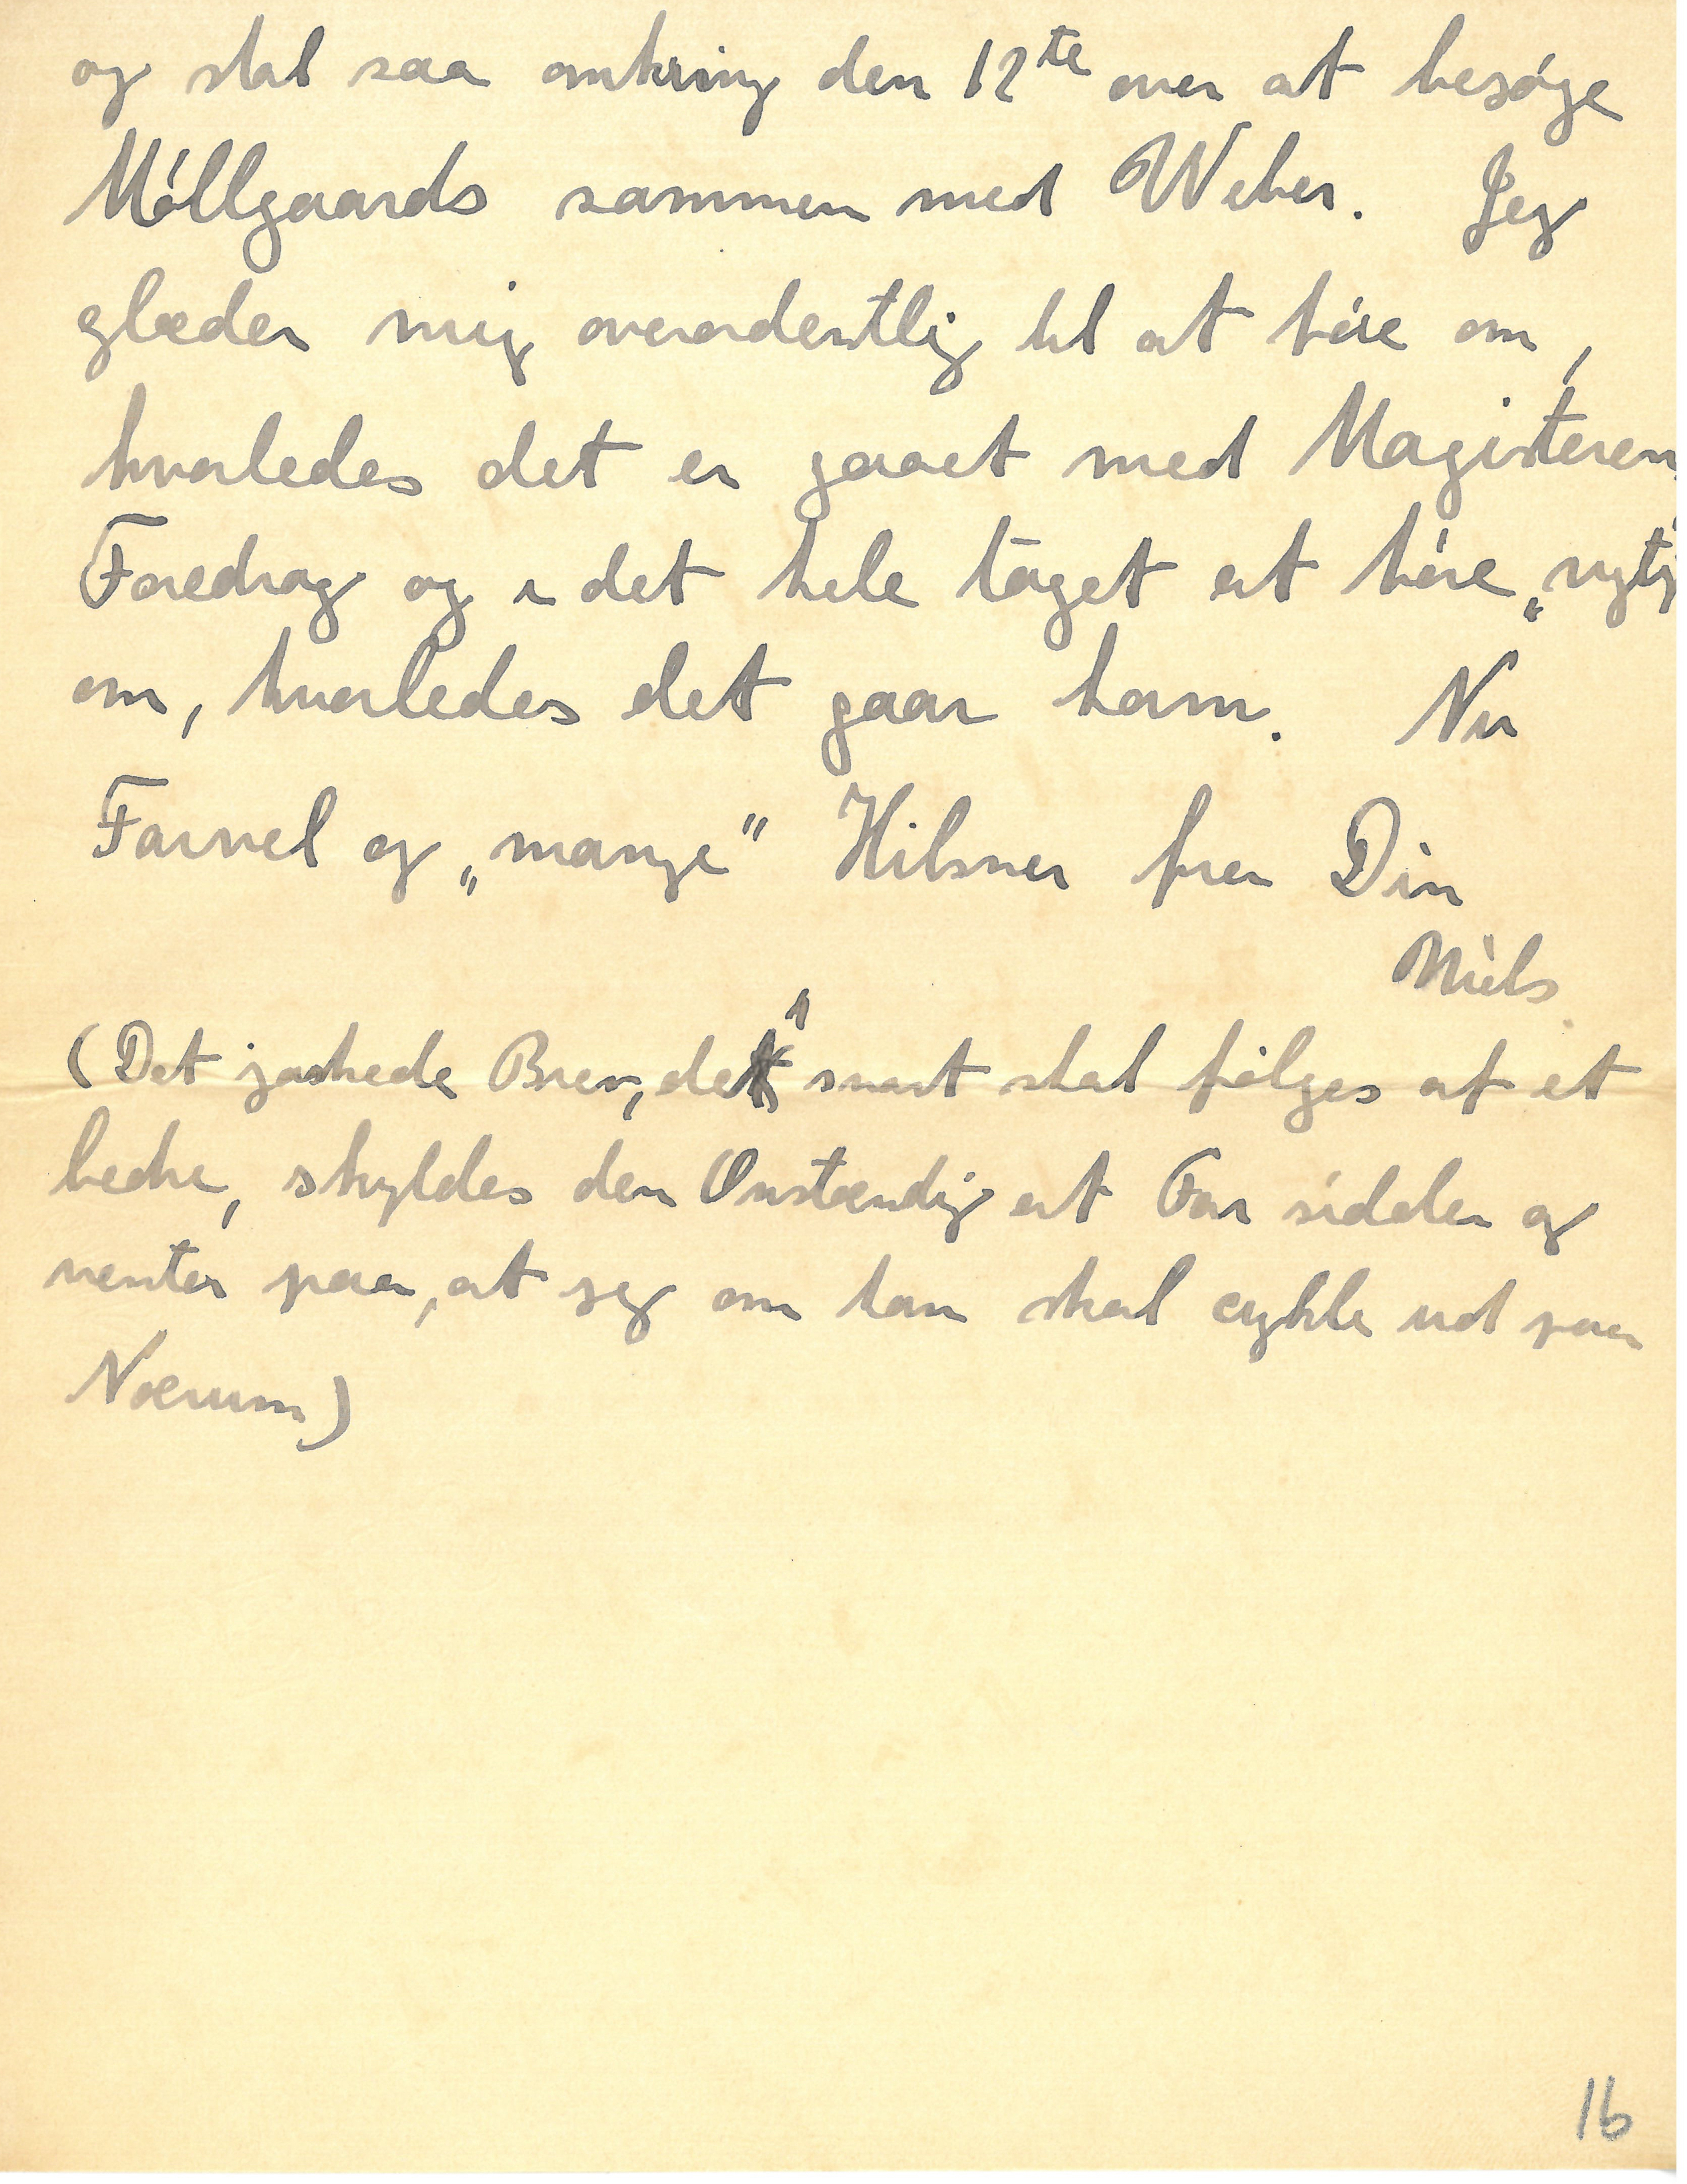 og skal saa omkring den 12te over at besøge
Møllgaards sammen med Weber. Jeg
glæder mig overordentlig til at høre om,
hvorledes det er gaaet med Magisteren
Foredrag og i det hele taget at høre „nyt
om, hvorledes det gaar ham. Nu
Farvel og „mange“ Hilsner fra Din
Niels
(Det jaskede Brev, der snart skal følges af et
bedre, skyldes den Omstændig at Far sidder og
venter paa, at jeg om han skal cykle ud paa
Nærum)
16